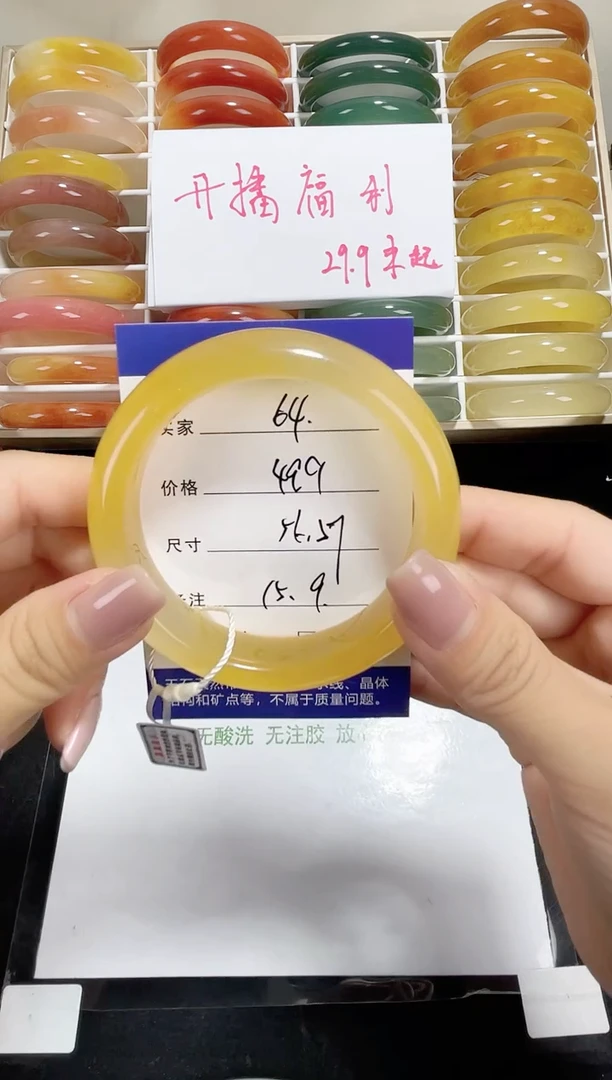 开播福利
29.9米起
家 64.
价格 499
尺寸 56.57
注 15.9.
线、晶体
和矿点等，不属于质量问题。
无酸洗 无注胶 放